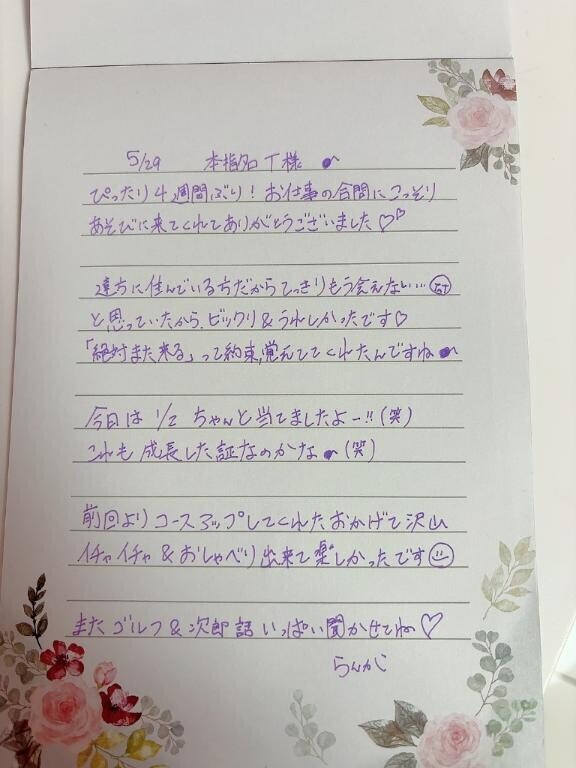 5/29 本指名 T様
ぴったり4週間ぶり！お仕事の合間にこっそり
あそびに来てくれてありがとうございました♡♡
遠方に住んでいる方だからてっきりもう会えない…
と思っていたから、ビックリ&うれしかったです♡
「絶対また来る」って約束、覚えててくれたんですね
今日は 1/2 ちゃんと当てましたよー!!(笑)
これも成長した証なのかな(笑)
前回よりコースアップしてくれたおかげで沢山
イチャイチャ&おしゃべり出来て楽しかったです
またゴルフ&次郎話いっぱい聞かせてね♡
らんか